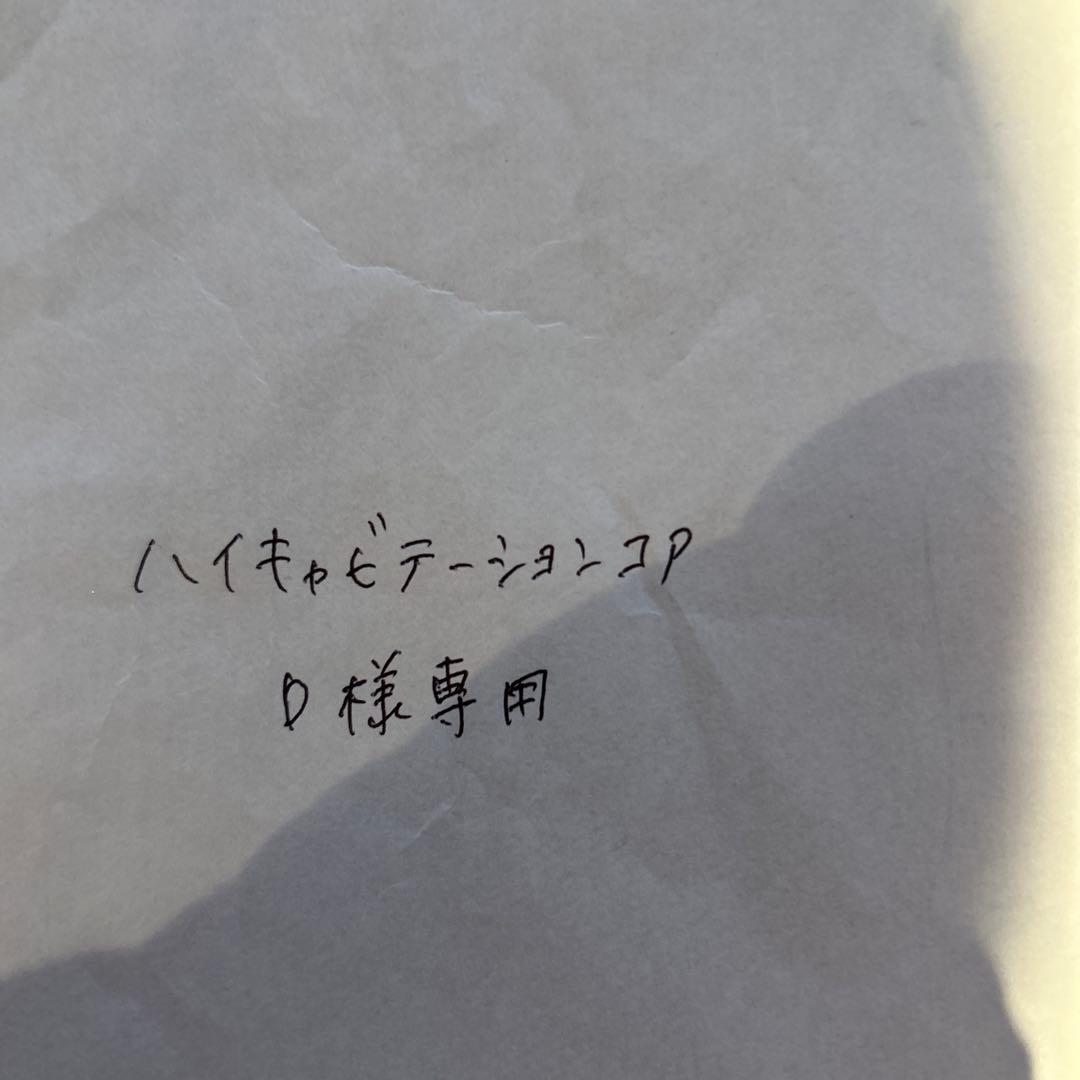 ハイキャビテーションコP
D様専用